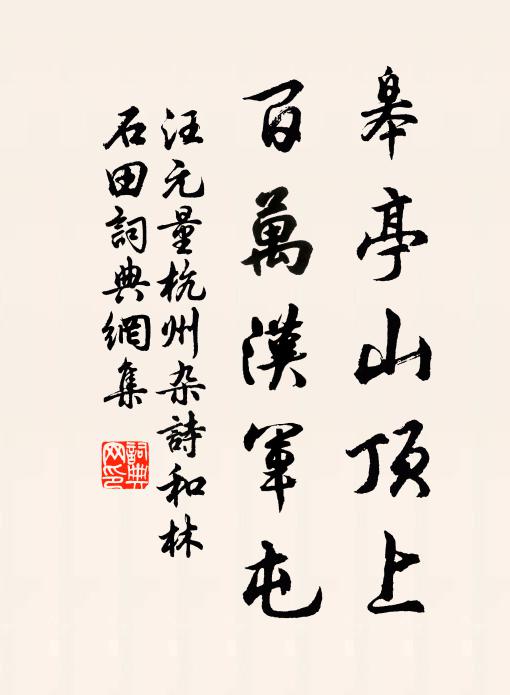 皋亭山頂上
百萬漢軍屯
汪元量杭州杂詩和林
石田詞典網集
詞典网印